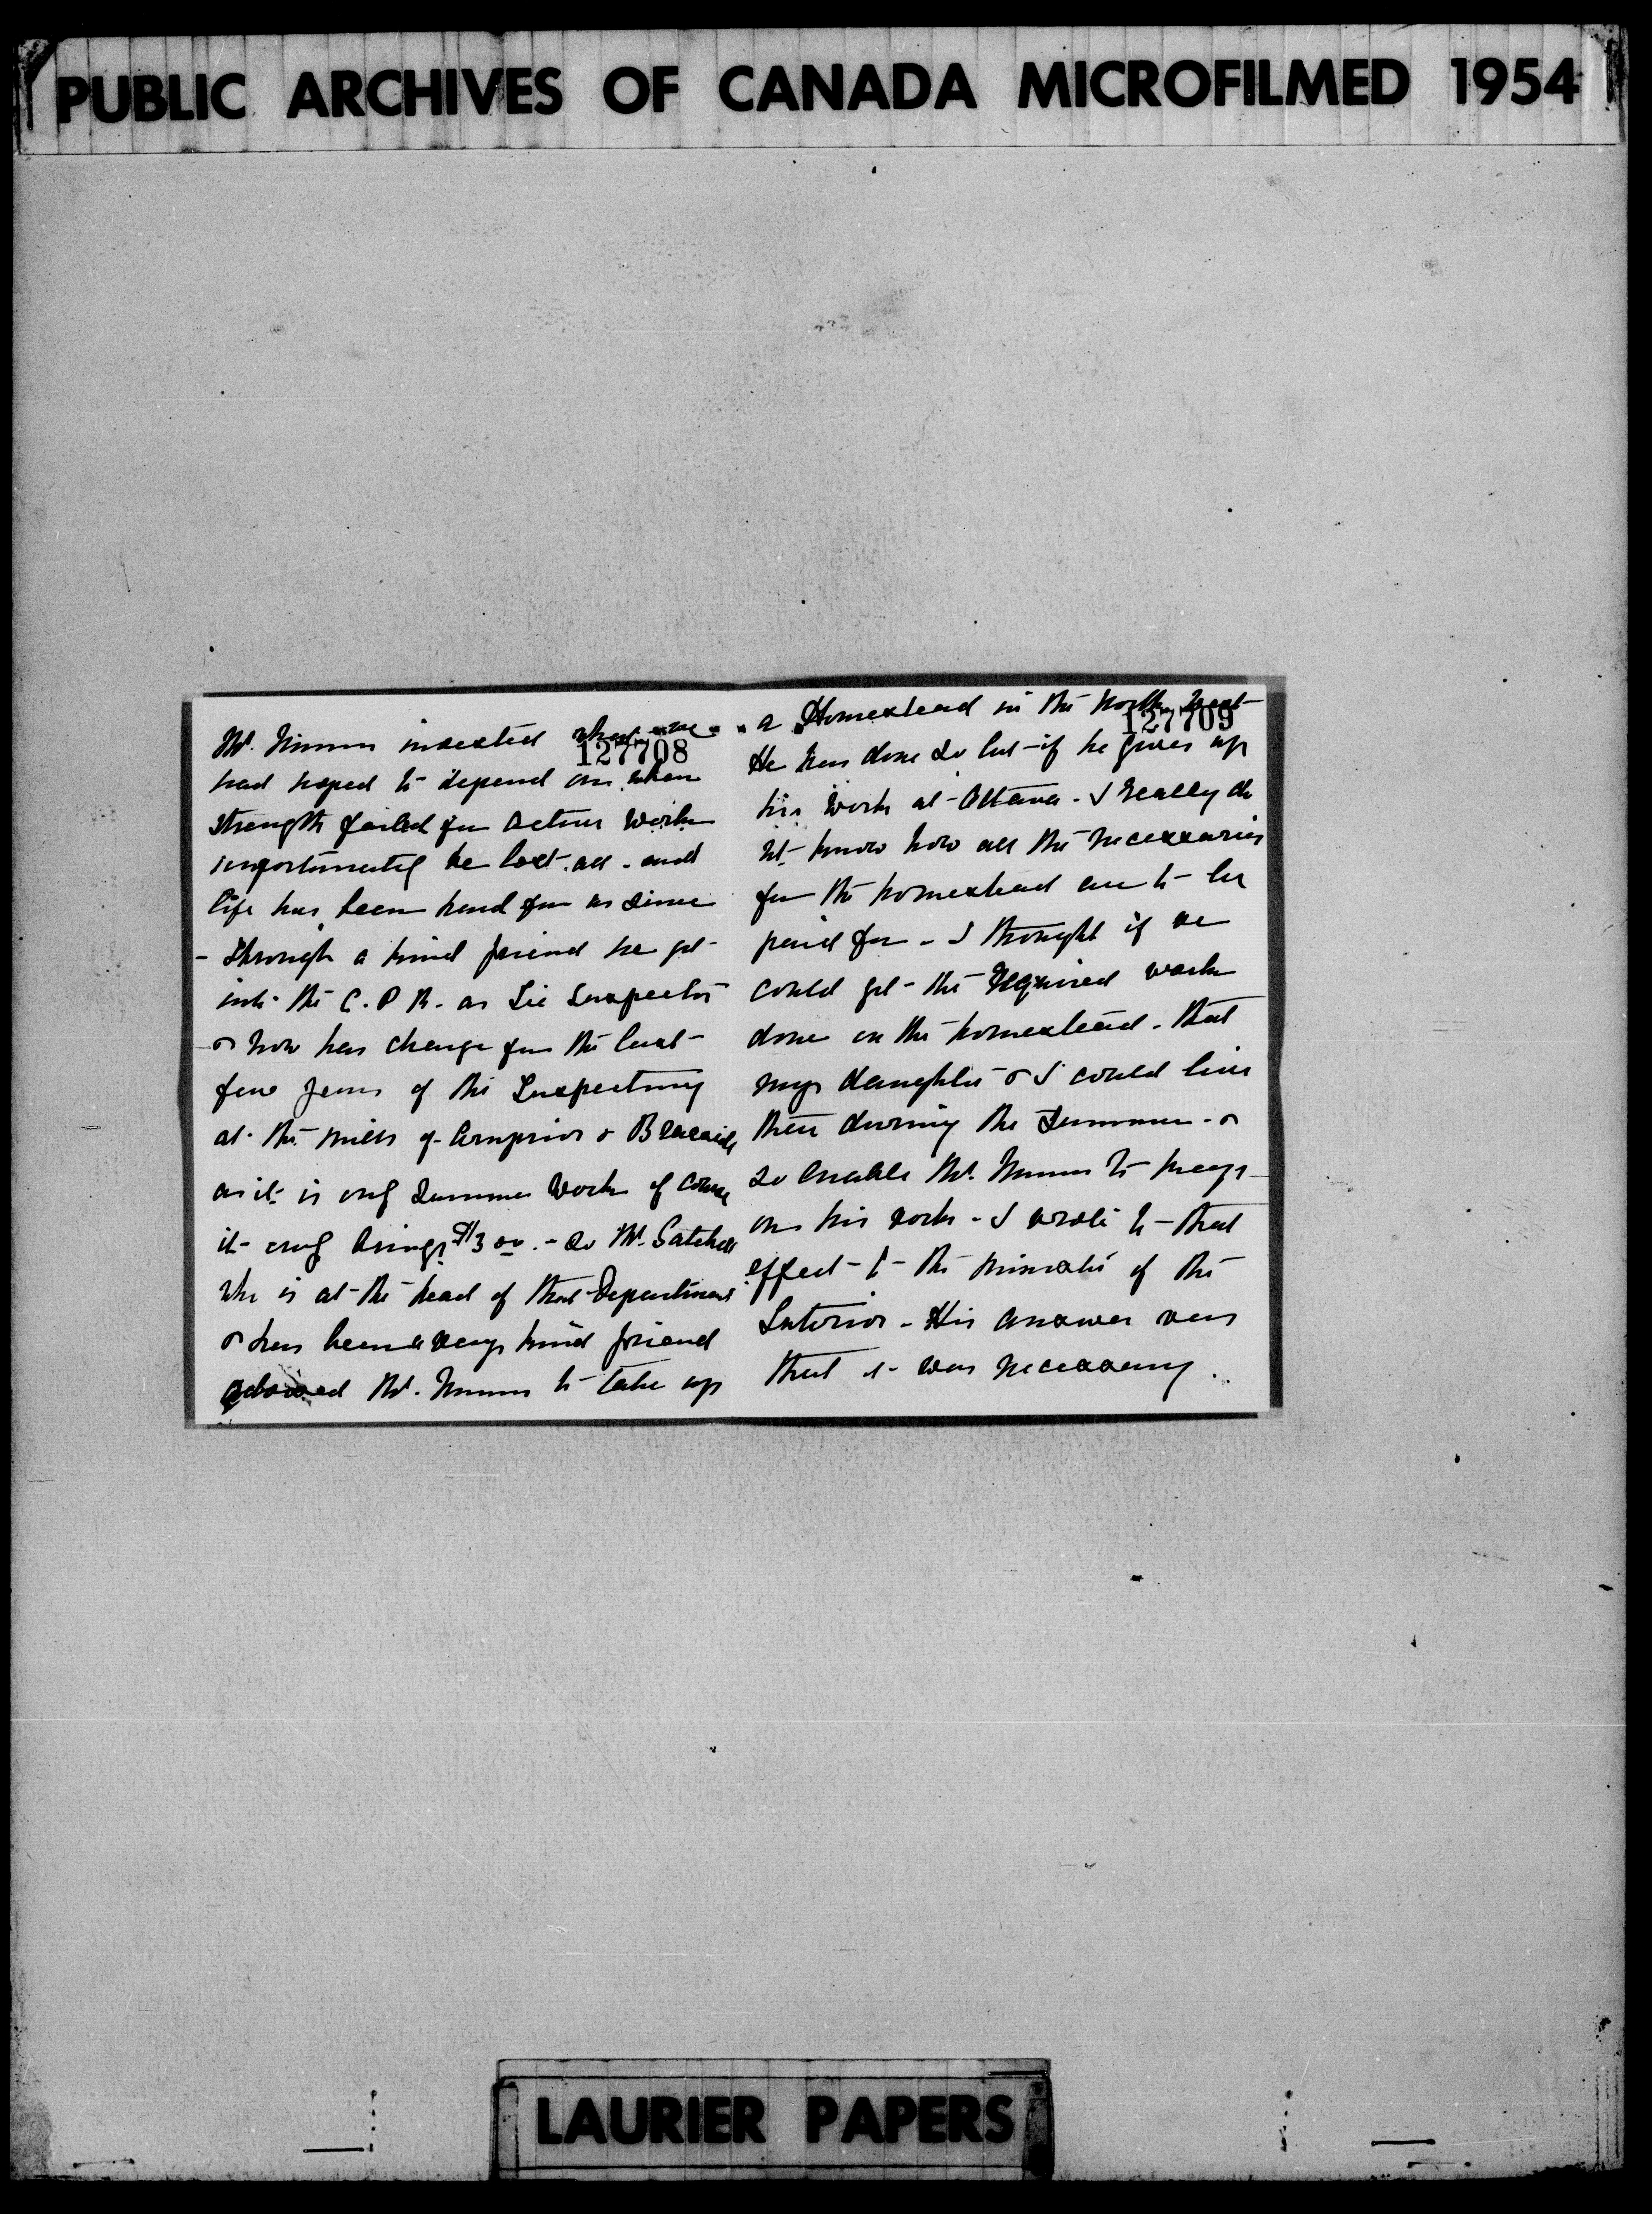 PUBLIC ARCHIVES OF CANADA MICROFILMED 1954
127708
Mr. Nimmo invested what we
had hoped to depend on when
strength failed for active work
unfortunately he lost all - and
life has been hard for us since
- Through a kind friend he got
into the C.P.R. as Tie Inspector
& now has charge for the last
few years of the Inspecting
at the mills of Arnprior & Braeside
as it is only Summer work of course
it only brings $300. - So Mr.
who is at the head of that Department
& has been a very kind friend
advised Mr. Nimmo to take up
127709
a Homestead in the North West
He has done so but if he gives up
his work at Ottawa - I really do
nt know how all the necessaries
for the homestead are to be
paid for - I thought if we
could get the required work
done on the homestead - that
my daughter & I could live
there during the Summer - &
so enable Mr. Nimmo to keep
on his work - I wrote to that
effect to the Minister of the
Interior - His answer was
that it was necessary ..
LAURIER PAPERS